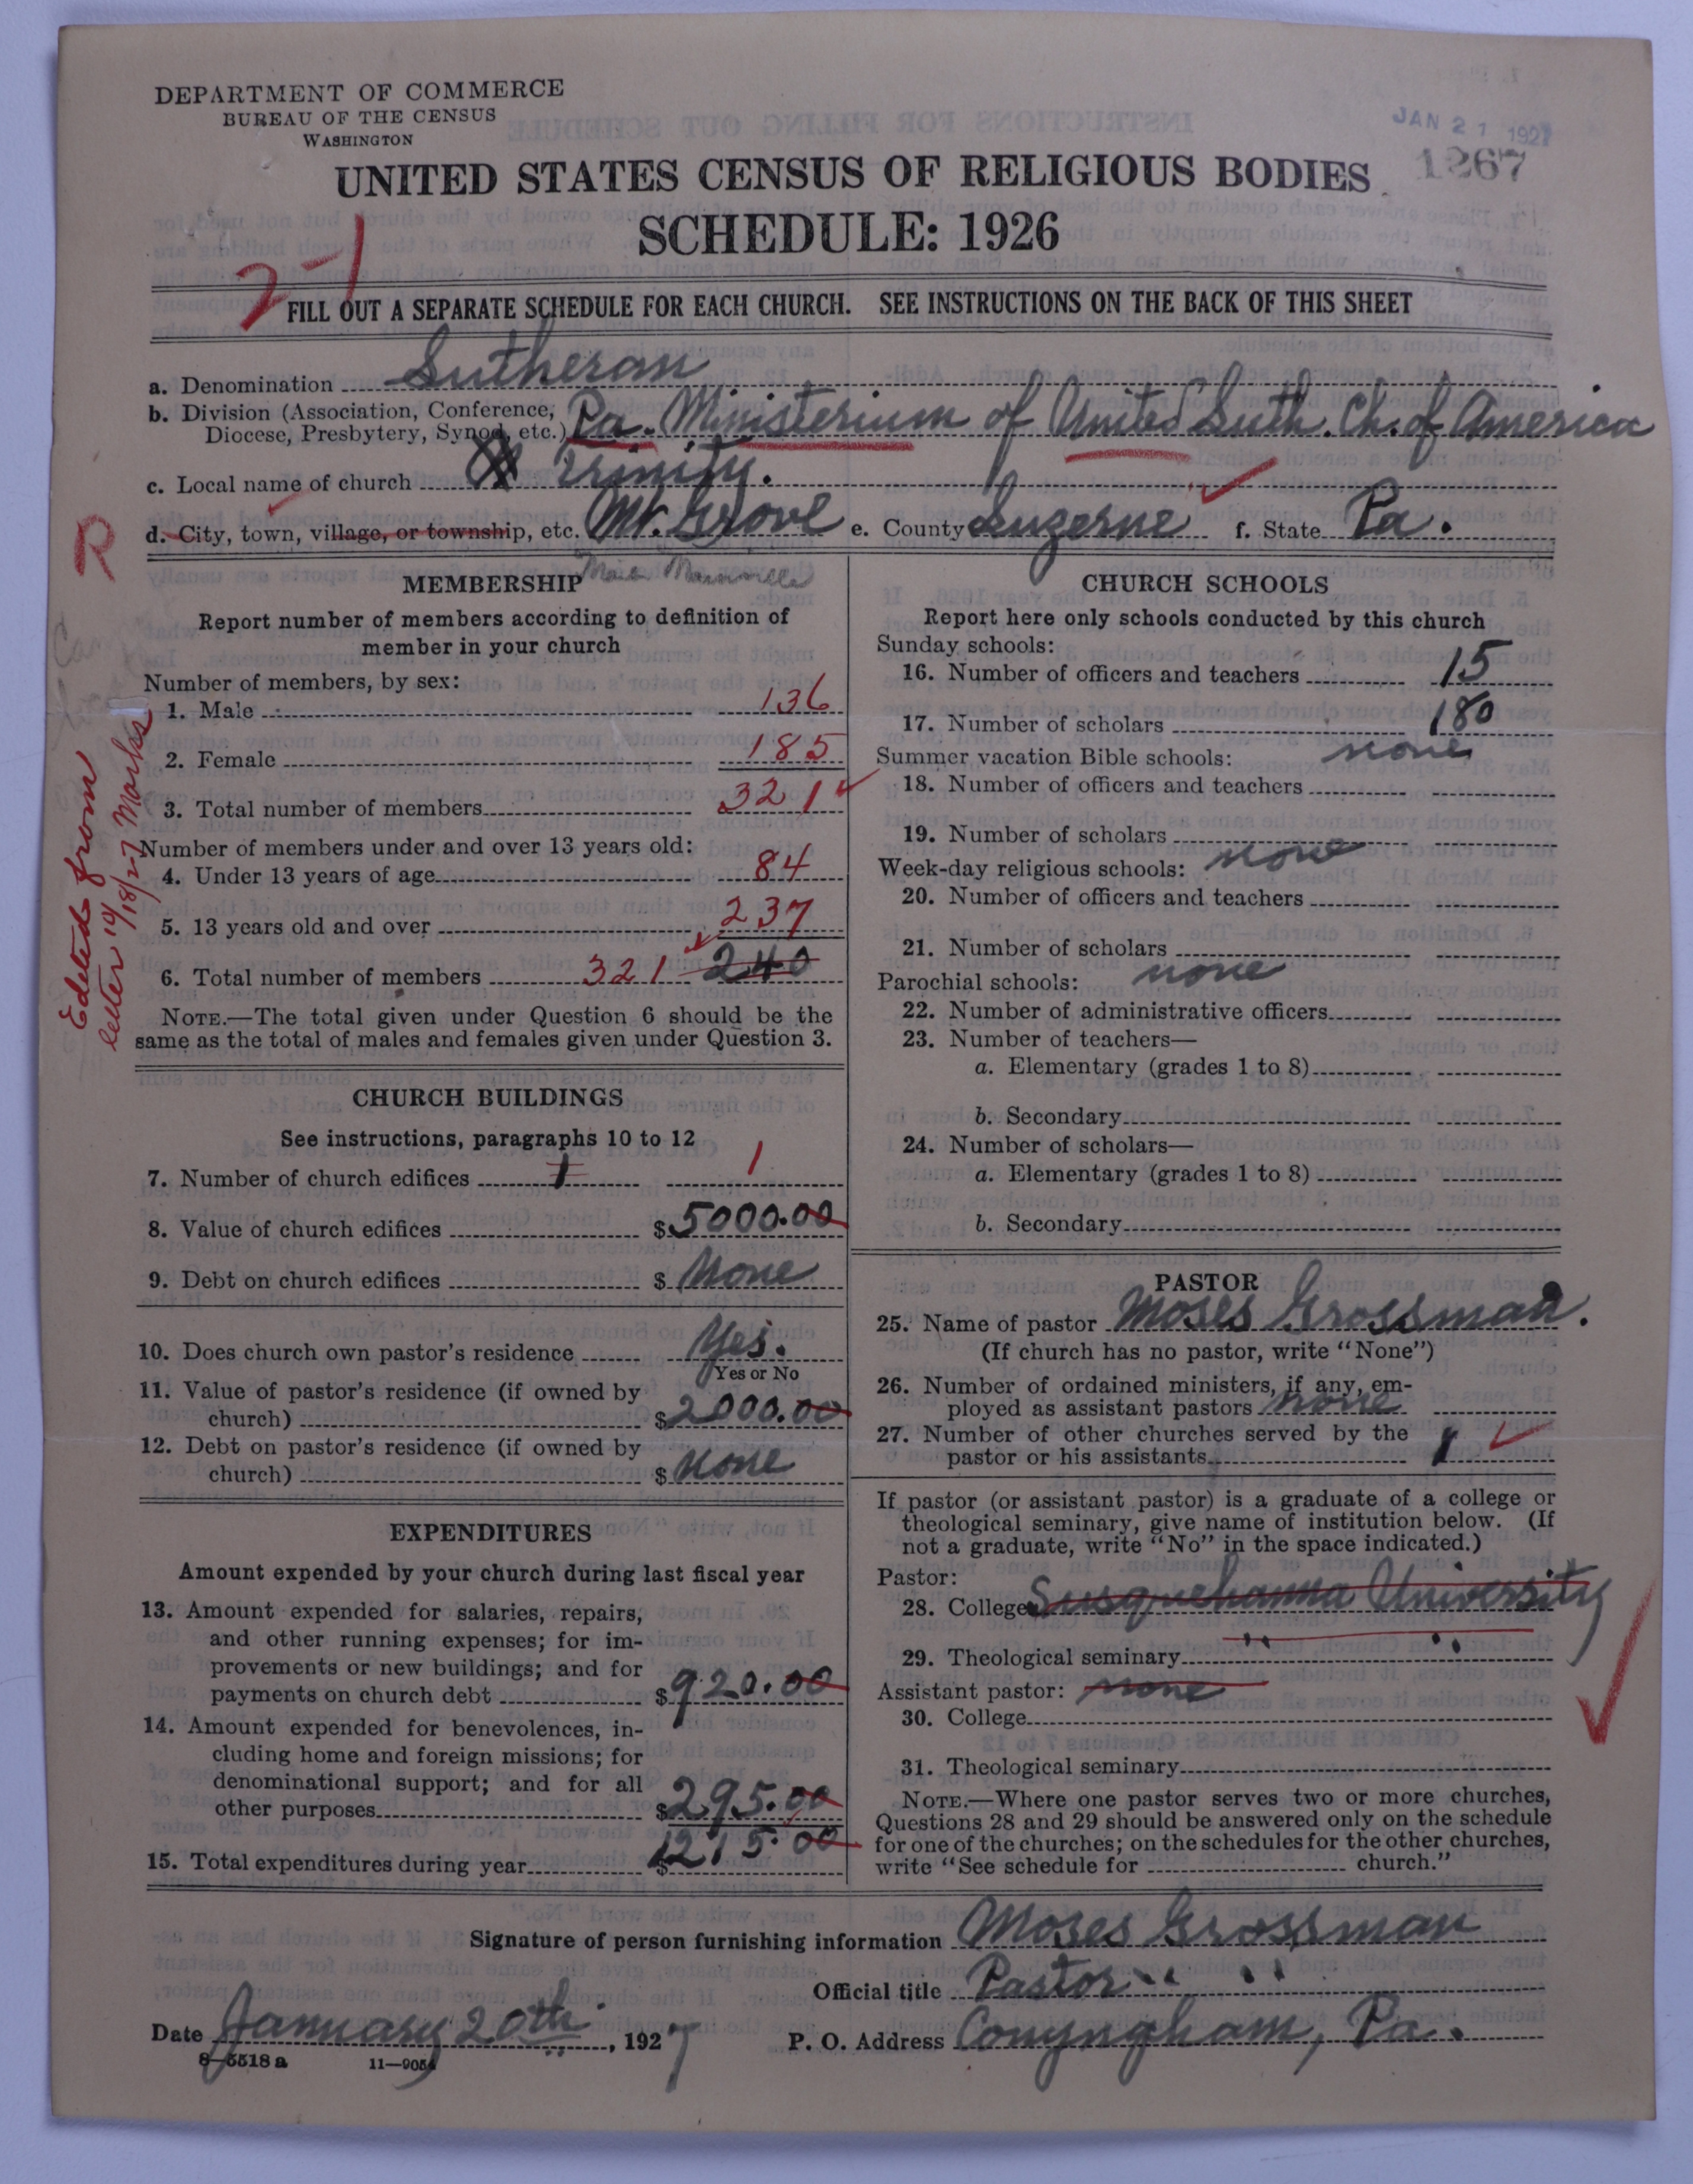 DEPARTMENT OF COMMERCE
BUREAU OF THE CENSUS
WASHINGTON
JAN 21 1927
1267
UNITED STATES CENSUS OF RELIGIOUS BODIES
SCHEDULE: 1926
2-1
FILL OUT A SEPARATE SCHEDULE FOR EACH CHURCH. SEE INSTRUCTIONS ON THE BACK OF THIS SHEET
a. Denomination Lutheran
b. Division (Association, Conference, Diocese, Presbytery, Synod, etc.) Pa. Ministerium of United Luth. Ch. of America
c. Local name of church Trinity.
d. City, town, village, or township, etc. Mt. Grove e. County Luzerne f. State Pa.
R
MEMBERSHIP
Report number of members according to definition of
member in your church
Number of members, by sex:
1. Male 136
2. Female 185
3. Total number of members 321
Number of members under and over 13 years old:
4. Under 13 years of age 84
5. 13 years old and over 237
6. Total number of members 321 240
NOTE.—The total given under Question 6 should be the
same as the total of males and females given under Question 3.
Edited from
letter 10/18/27 Marks
CHURCH BUILDINGS
See instructions, paragraphs 10 to 12
7. Number of church edifices 1 1
8. Value of church edifices $5000.00
9. Debt on church edifices $ None
10. Does church own pastor's residence Yes.
Yes or No
11. Value of pastor's residence (if owned by
church) $2000.00
12. Debt on pastor's residence (if owned by
church) $ None
EXPENDITURES
Amount expended by your church during last fiscal year
13. Amount expended for salaries, repairs,
and other running expenses; for im-
provements or new buildings; and for
payments on church debt $920.00
14. Amount expended for benevolences, in-
cluding home and foreign missions; for
denominational support; and for all
other purposes $295.00
15. Total expenditures during year $1215.00
CHURCH SCHOOLS
Report here only schools conducted by this church
Sunday schools:
16. Number of officers and teachers 15
17. Number of scholars 180
Summer vacation Bible schools: none
18. Number of officers and teachers
19. Number of scholars
Week-day religious schools: none
20. Number of officers and teachers
21. Number of scholars
Parochial schools: none
22. Number of administrative officers
23. Number of teachers—
a. Elementary (grades 1 to 8)
b. Secondary
24. Number of scholars—
a. Elementary (grades 1 to 8)
b. Secondary
PASTOR
25. Name of pastor Moses Grossman.
(If church has no pastor, write "None")
26. Number of ordained ministers, if any, em-
ployed as assistant pastors none
27. Number of other churches served by the
pastor or his assistants
If pastor (or assistant pastor) is a graduate of a college or
theological seminary, give name of institution below. (If
not a graduate, write "No" in the space indicated.)
Pastor:
28. College Susquehanna University
29. Theological seminary " "
Assistant pastor: none
30. College
31. Theological seminary
NOTE.—Where one pastor serves two or more churches,
Questions 28 and 29 should be answered only on the schedule
for one of the churches; on the schedules for the other churches,
write "See schedule for church."
Signature of person furnishing information Moses Grossman
Official title Pastor " "
Date January 20th, 1927 P. O. Address Conyngham, Pa.
8-5518 a 11-9054